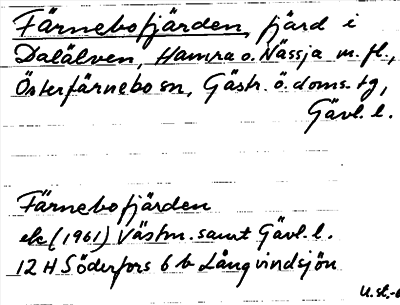 Färnebofjärden, fjärd i
Dalälven, Hamra o. Nässja m. fl.,
Österfärnebo sn, Gästr. ö. doms. tg,
Gävl. l.
Färnebofjärden
ek (1961) Västm. samt Gävl. l.
12 H Söderfors 6 b Långvindsjön
U. st,-6